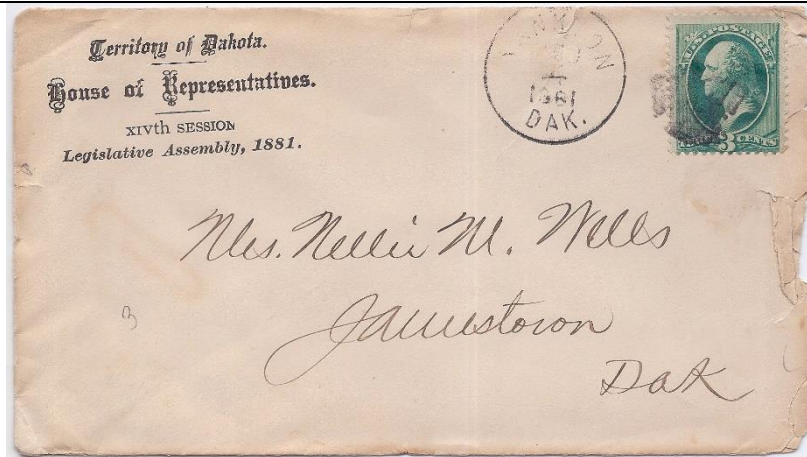 Territory of Dakota.
House of Representatives.
XIVth SESSION
Legislative Assembly, 1881.
YANKTON
1881
DAK.
U.S. POSTAGE
3 CENTS
Mrs. Nellie M. Wells
Jamestown
Dak
3